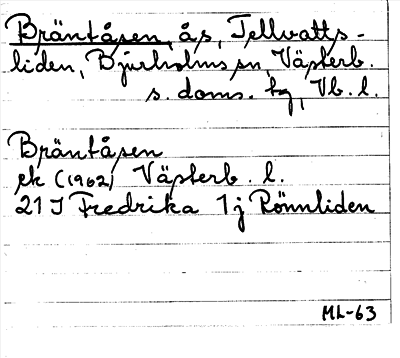 Bräntåsen, ås, Tellvatts-
liden, Bjurholms sn, Västerb.
s. doms. hg, Vb. l.
Bräntåsen
ek (1962) Västerb. l.
21 J Fredrika 1j Rönnliden
ML-63